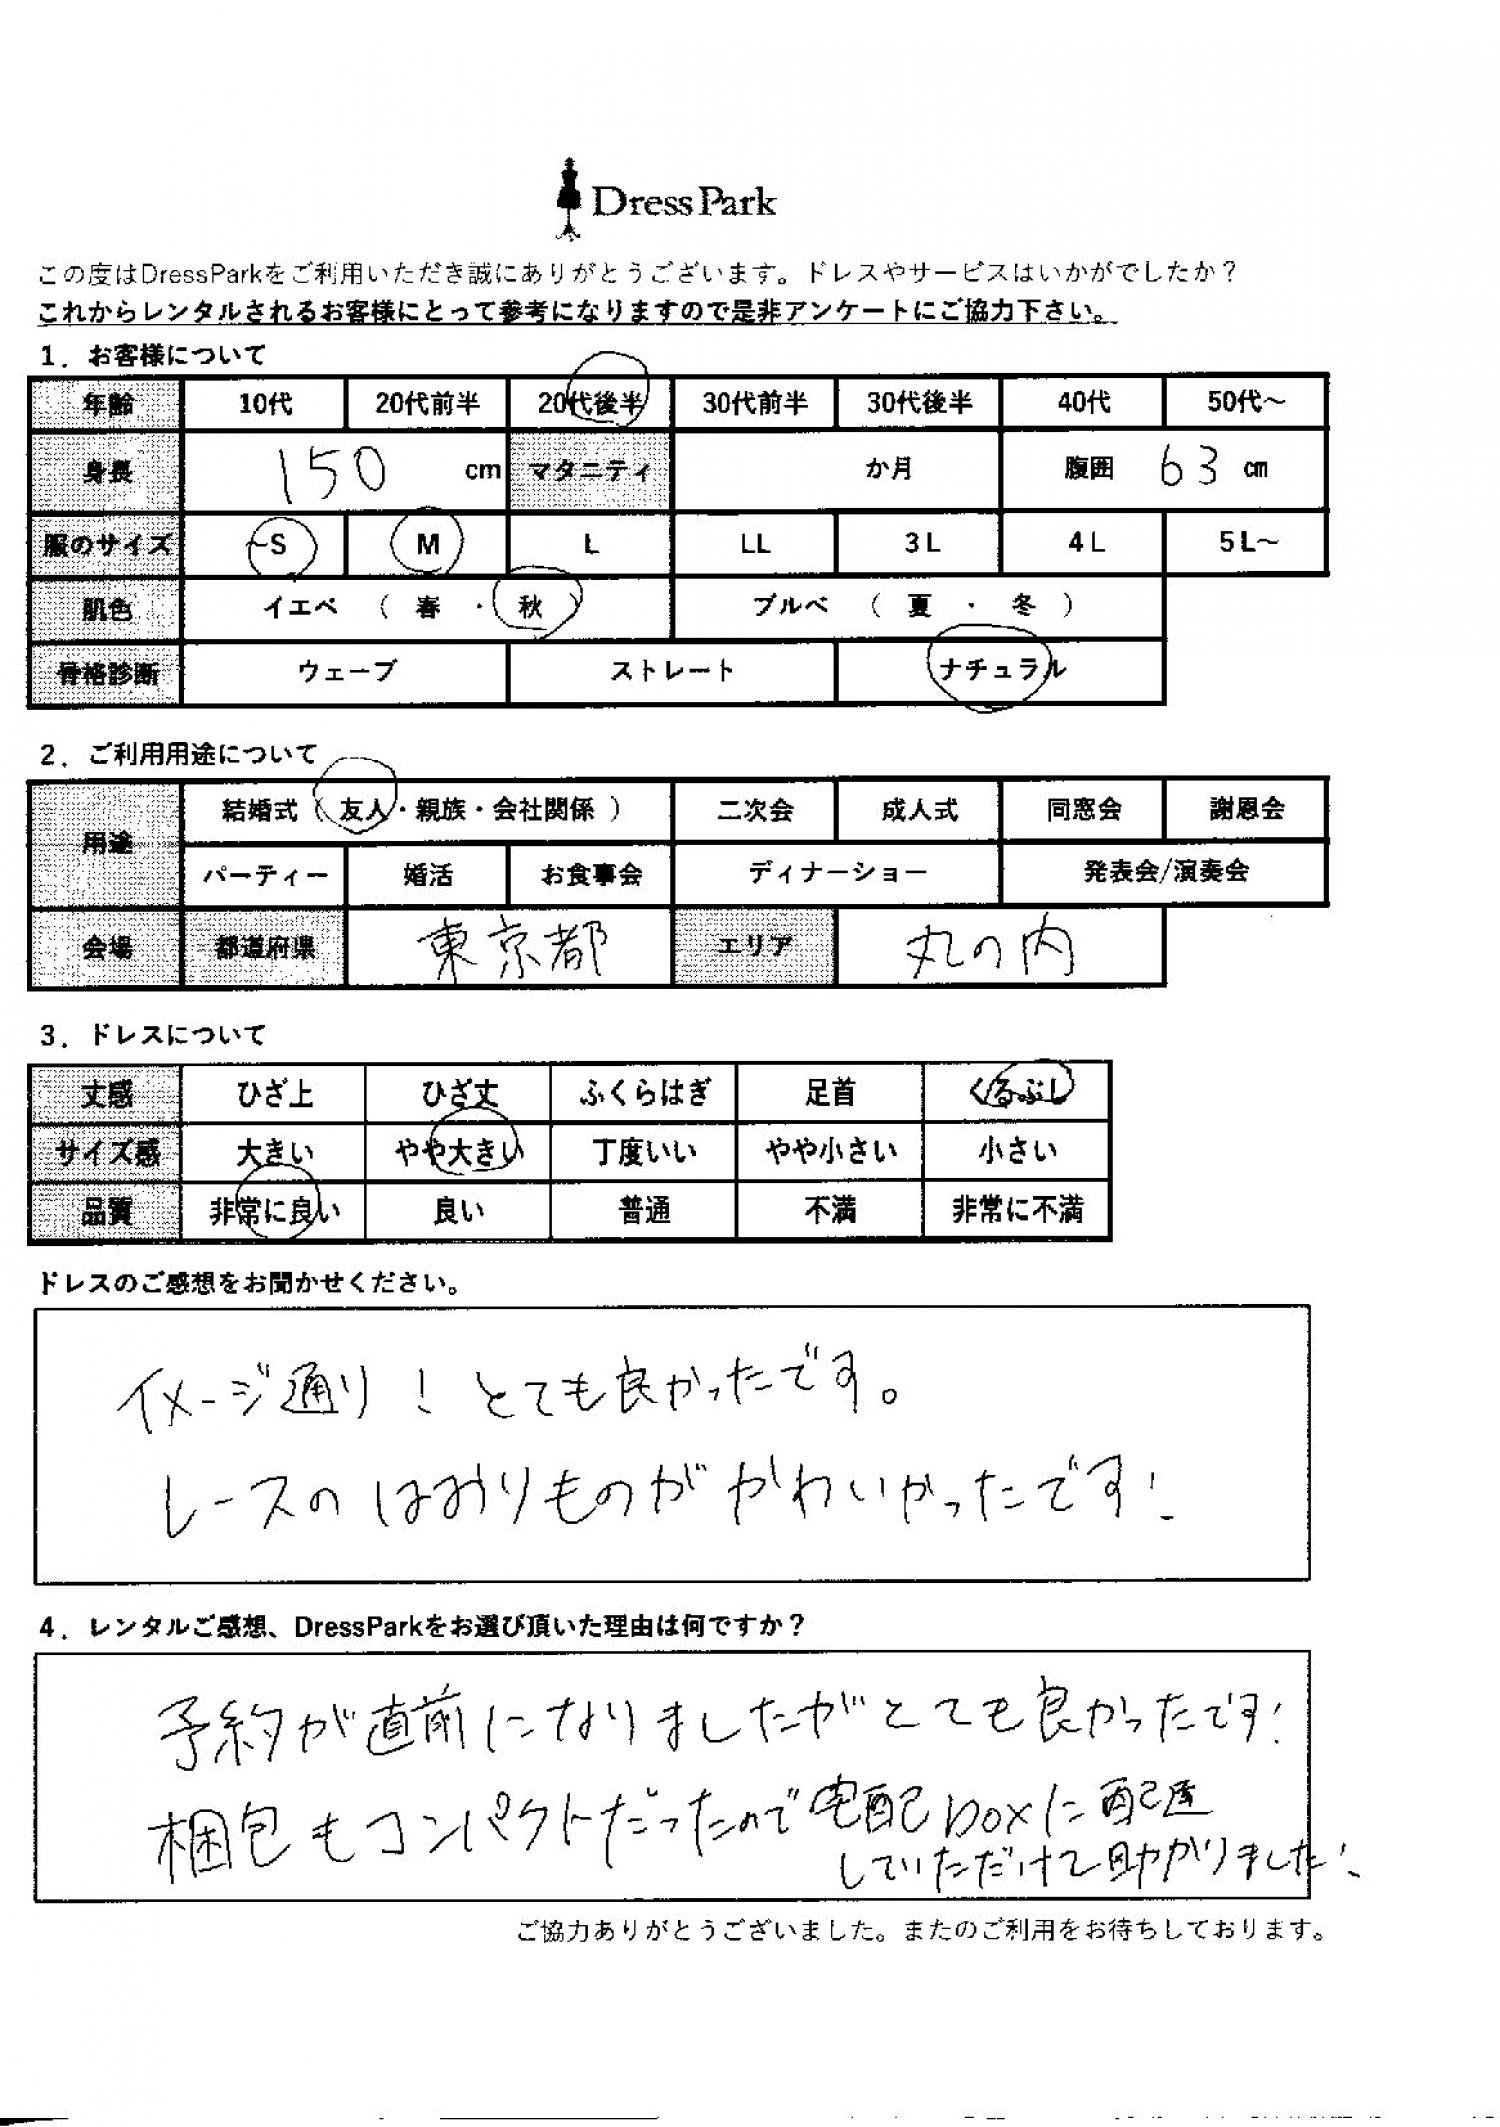 DressPark
この度はDressParkをご利用いただき誠にありがとうございます。ドレスやサービスはいかがでしたか？
これからレンタルされるお客様にとって参考になりますので是非アンケートにご協力下さい。
1．お客様について
年齢 10代 20代前半 20代後半 30代前半 30代後半 40代 50代～
身長 150 cm マタニティ か月 腹囲 63 cm
服のサイズ ~S M L LL 3L 4L 5L～
肌色 イエベ （ 春 ・ 秋 ） ブルベ （ 夏 ・ 冬 ）
骨格診断 ウェーブ ストレート ナチュラル
2．ご利用用途について
用途 結婚式（ 友人・親族・会社関係 ） 二次会 成人式 同窓会 謝恩会
パーティー 婚活 お食事会 ディナーショー 発表会/演奏会
会場 都道府県 東京都 エリア 丸の内
3．ドレスについて
丈感 ひざ上 ひざ丈 ふくらはぎ 足首 くるぶし
サイズ感 大きい やや大きい 丁度いい やや小さい 小さい
品質 非常に良い 良い 普通 不満 非常に不満
ドレスのご感想をお聞かせください。
イメージ通り！とても良かったです。
レースのはおりものがかわいかったです！
4．レンタルご感想、DressParkをお選び頂いた理由は何ですか？
予約が直前になりましたがとても良かったです！
梱包もコンパクトだったので宅配boxに配達
していただけて助かりました！
ご協力ありがとうございました。またのご利用をお待ちしております。